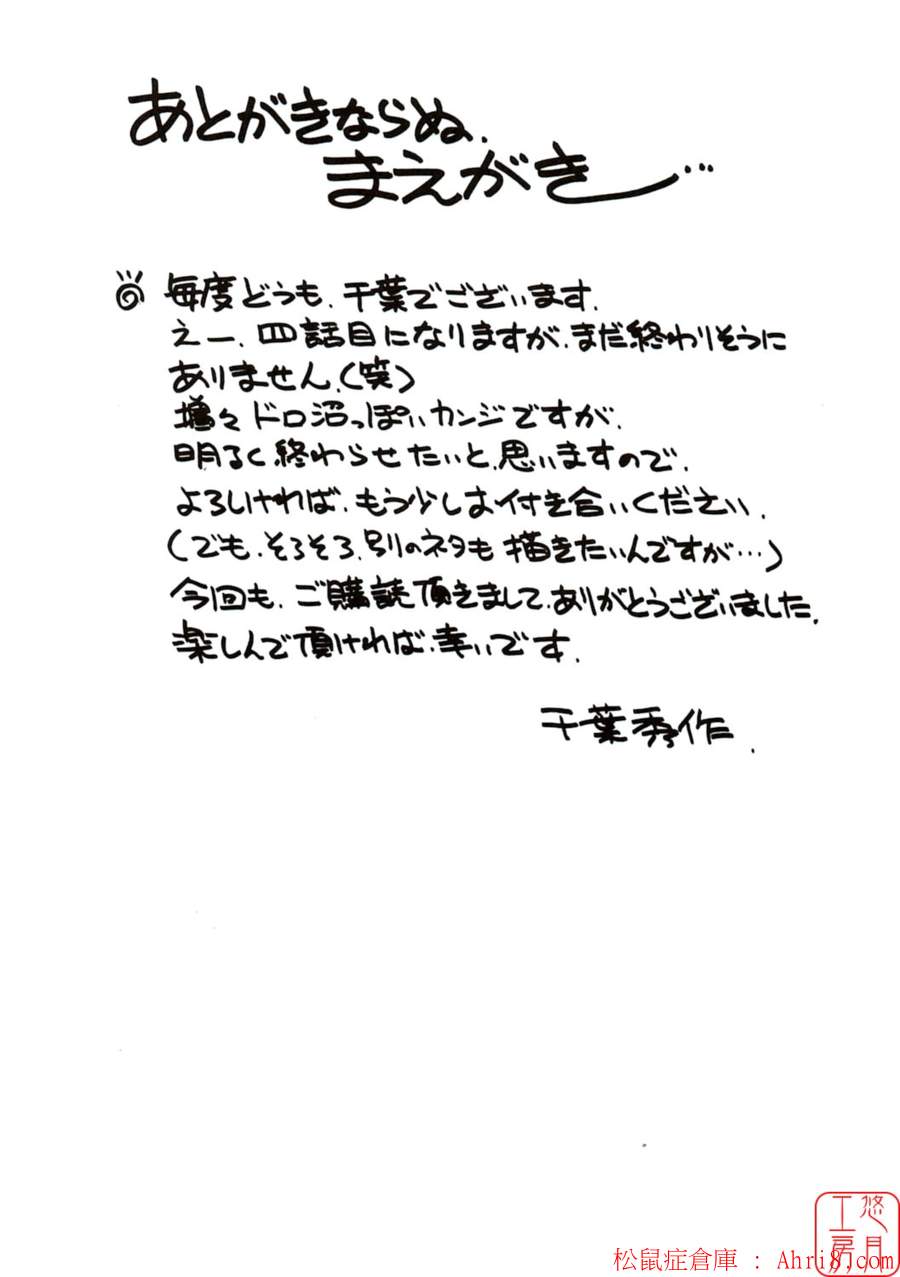 あとがきならぬ、
まえがき…
毎度どうも、千葉でございます。
えー、四話目になりますが、まだ終わりそうに
ありません。(笑)
増々ドロ沼っぽいカンジですが、
明るく終わらせたいと、思いますので、
よろしければ、もう少しお付き合いください。
(でも、そろそろ、別のネタも描きたいんですが…)
今回も、ご購読頂きまして、ありがとうございました。
楽しんで頂ければ、幸いです。
千葉秀作.
悠月工房
松鼠症倉庫 : Ahri8.com